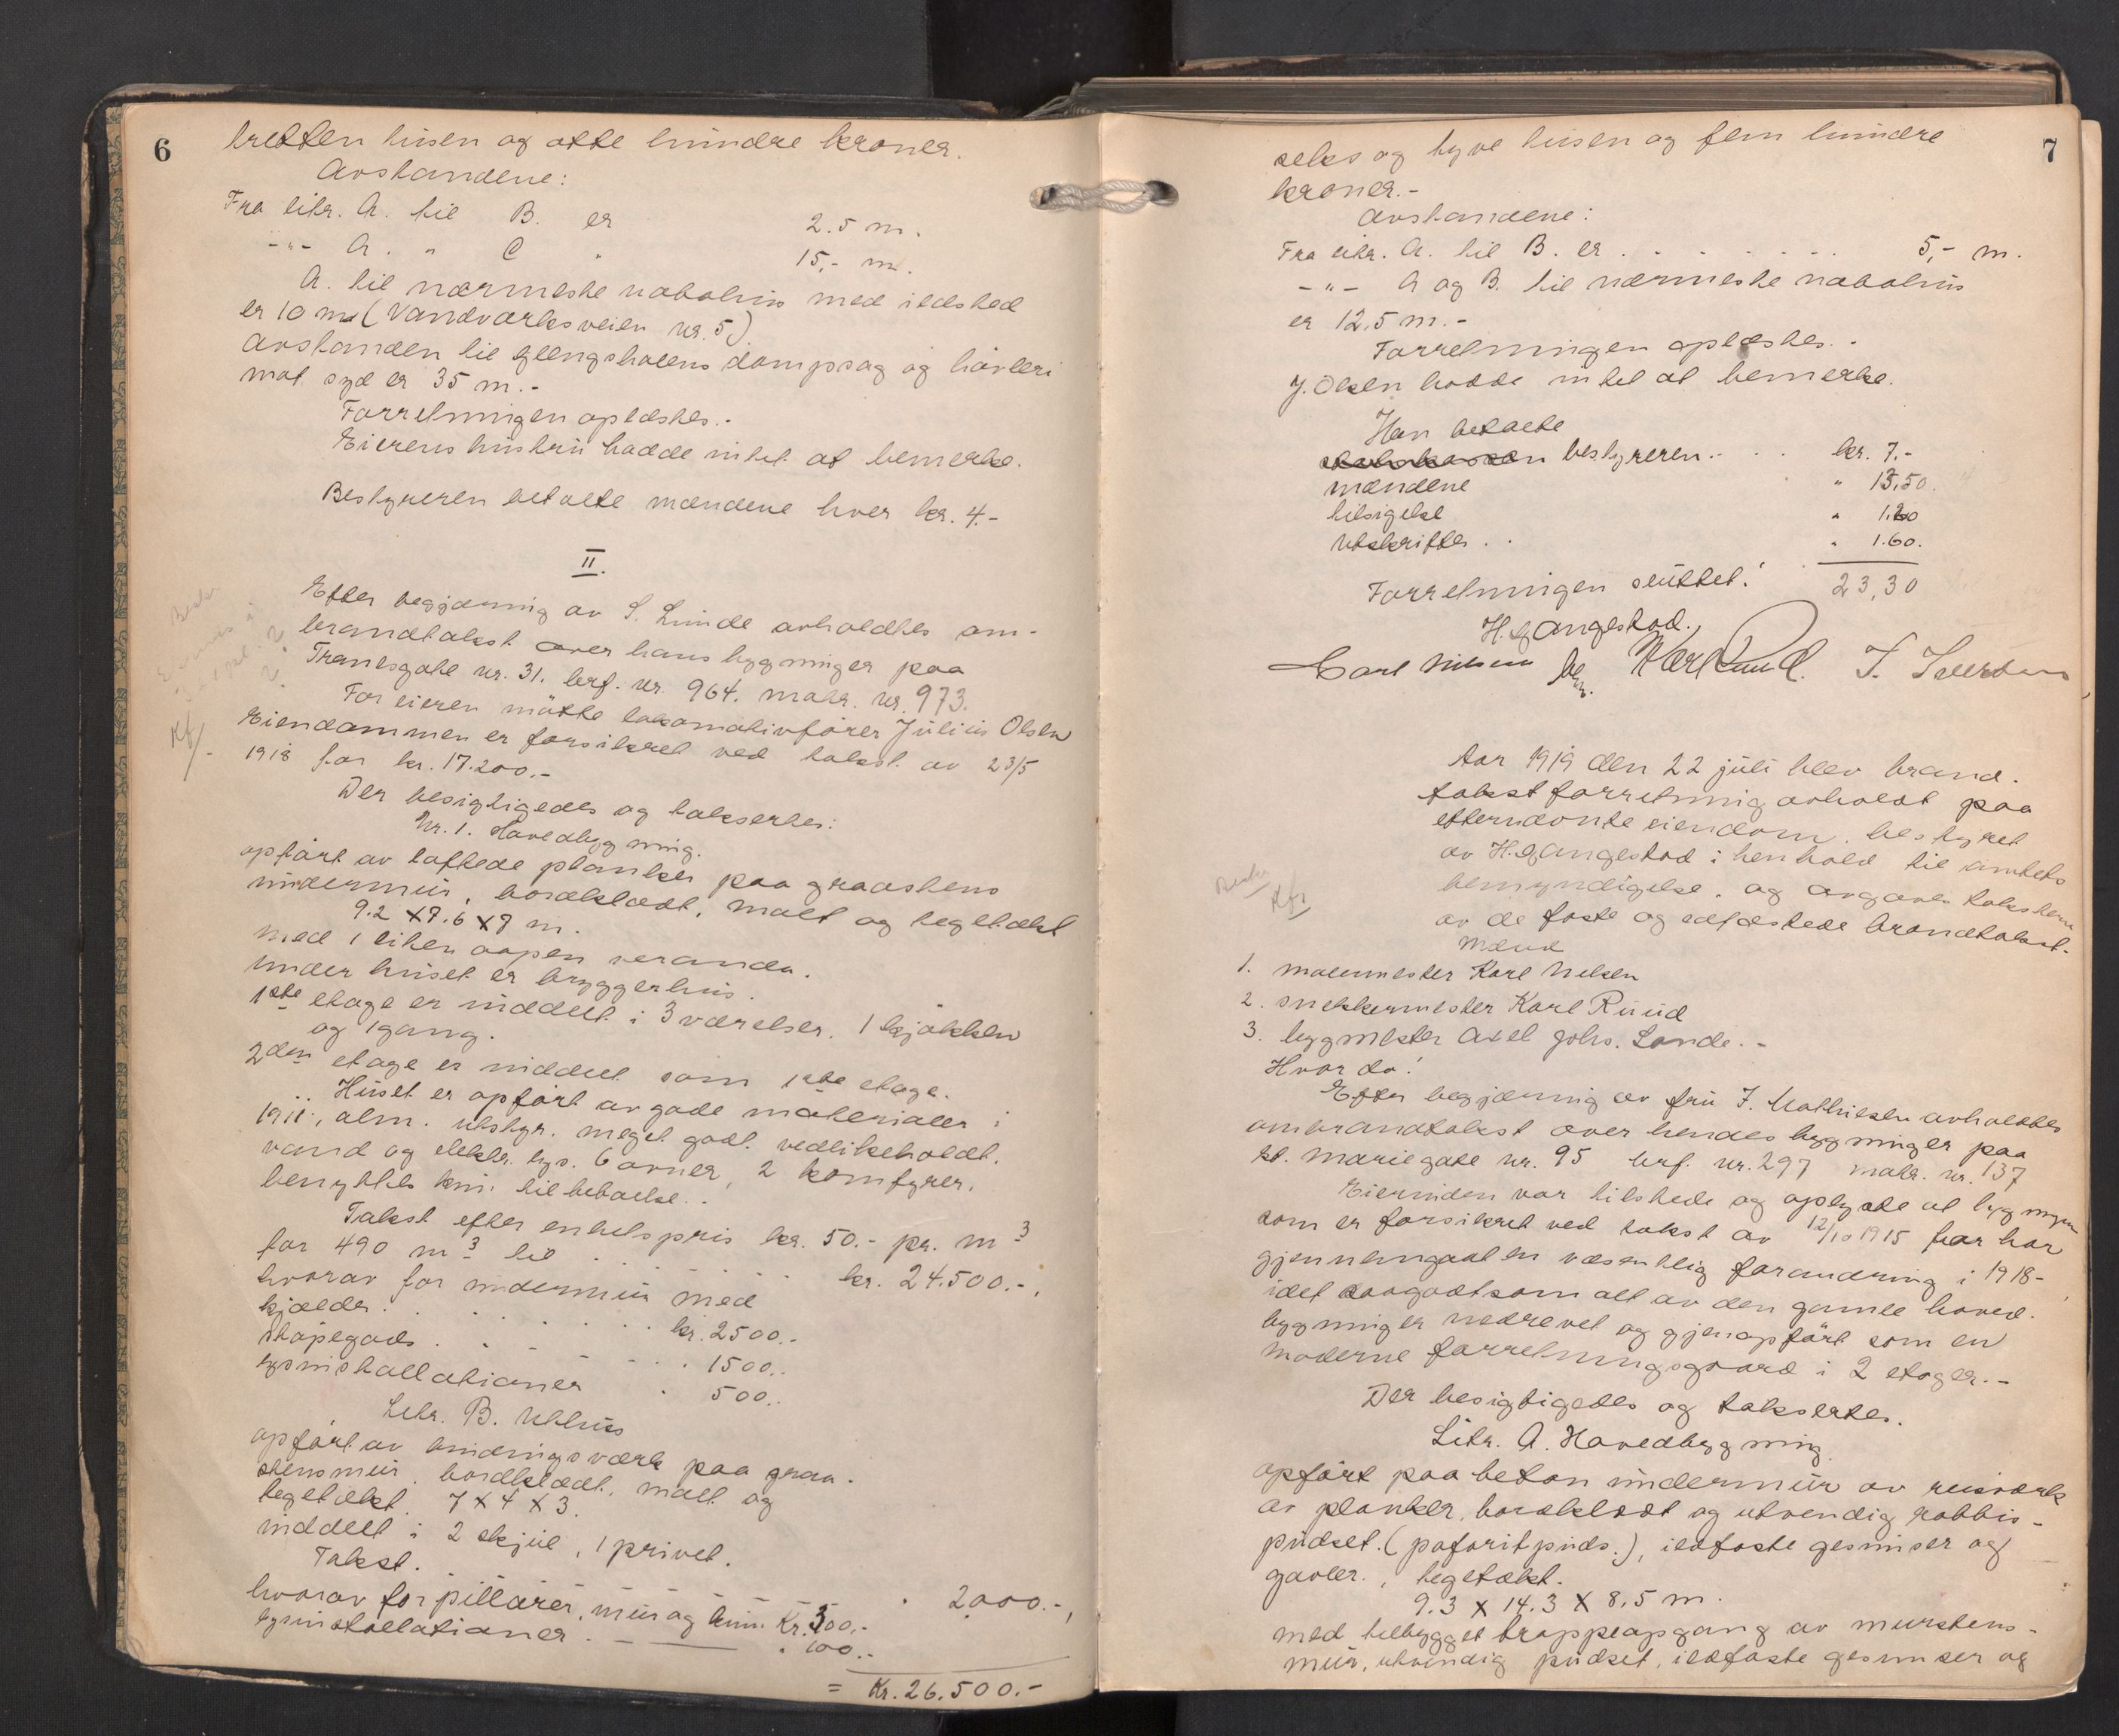 6
tretten tusen og otte hundre kroner.
Avstandene:
Fra litr. A. til B. er 2.5 m.
-"- A. " C " 15,- m.
A. til nærmeste nabohus med ildsted
er 10 m (Vandværksveien nr. 5)
Avstanden til Glengshølens dampsag og høvleri
mot syd er 35 m.-
Forretningen oplæstes.-
Eierens hustru hadde intet at bemerke.
Bestyreren betalte mændene hver kr. 4.-
II.
Efter begjæring av S. Lunde avholdtes om-
brandtakst over hans bygninger paa
Tranesgate nr. 31. brf. nr. 964. matr. nr. 973.
For eieren møtte lokomotivfører Julius Olsen
Eiendommen er forsikret ved takst av 23/5
1918 for kr. 17.200.-
Kf/-
Der besigtigedes og taksertes:
Nr. 1. Hovedbygning.
opført av laftede planker paa graastens
undermur, bordklædt, malt og tegltækt
9.2 x 7.6 x 7 m.
med 1 liten aapen veranda.
Under huset er bryggerhus.
1ste etage er inddelt i 3 værelser, 1 kjøkken
og 1 gang.
2den etage er inddelt som 1ste etage.
Huset er opført av gode materialer i
1911, alm. utstyr. meget godt vedlikeholdt.
vand og elektr. lys. 6 ovner, 2 komfyrer.
benyttes kun til beboelse.
Takst efter enhetspris kr. 50.- pr. m3
for 490 m3 til . . . . . kr. 24.500.-,
hvorav for undermur med
kjælder . . . . . . kr. 2500.-
støpegods . . . . . . 1500.-
lysinstallationer . 500.-
Litr. B. Uthus
opført av bindingsværk paa graa-
stensmur, bordklædt, malt og
teglhækt. 7 x 4 x 3.
inddelt i 2 skjul, 1 privet.
Takst. " 2000.-,
hvorav for pillarer, mur og kum. Kr. 300.-
lysinstallationer . — " 100.-
= Kr. 26.500.-
7
seks og tyve tusen og fem hundre
kroner.-
Avstandene:
Fra litr. A. til B. er . . . . . . . 5,- m.
-"- A og B. til nærmeste nabohus
er 12.5 m.-
Forretningen oplæstes.-
J. Olsen hadde intet at bemerke.
Han betalte
bestyreren . . . kr. 7.-
mændene " 13,50.
tilsigelse " 1.20
Utskrifter . . " 1.60.
Forretningen sluttet! 23,30
H. Gangestad.
Carl Nilsen Karl Ruud. T. Syvertsen
Aar 1919 den 22 juli blev brand-
takstforretning avholdt paa
efternævnte eiendom, bestyret
av H. Gangestad i henhold til amtets
bemyndigelse, og avgaves taksten
av de faste og edfæstede brandtakst-
mænd
Kf/
1. malermester Karl Nilsen
2. snekkermester Karl Ruud
3. bygmester Axel Johs. Lande.-
Hvor da!
Efter begjæring av fru J. Mathiesen avholdtes
ombrandtakst over hendes bygninger paa
St. Mariegate nr. 95 brf. nr. 297 matr. nr. 137
Eierinden var tilstede og oplyste at bygningen
som er forsikret ved takst av 12/10 1915 har
gjennemgaat en væsentlig forandring i 1918-
idet saagodtsom alt av den gamle hoved-
bygning er nedrevet og gjenopført som en
moderne forretningsgaard i 2 etager.-
Der besigtigedes og takseres.
Litr. A. Hovedbygning
opført paa beton undermur av reisværk
av planker, bordklædt og utvendig rabbis-
pudset. (paforitpuds.), ildfaste gesimser og
gavler., teglhækt.
9.3 x 14.3 x 8,5 m.
med tilbygget trappeopgang av murstens-
mur, utvendig pudset, ildfaste gesimser og